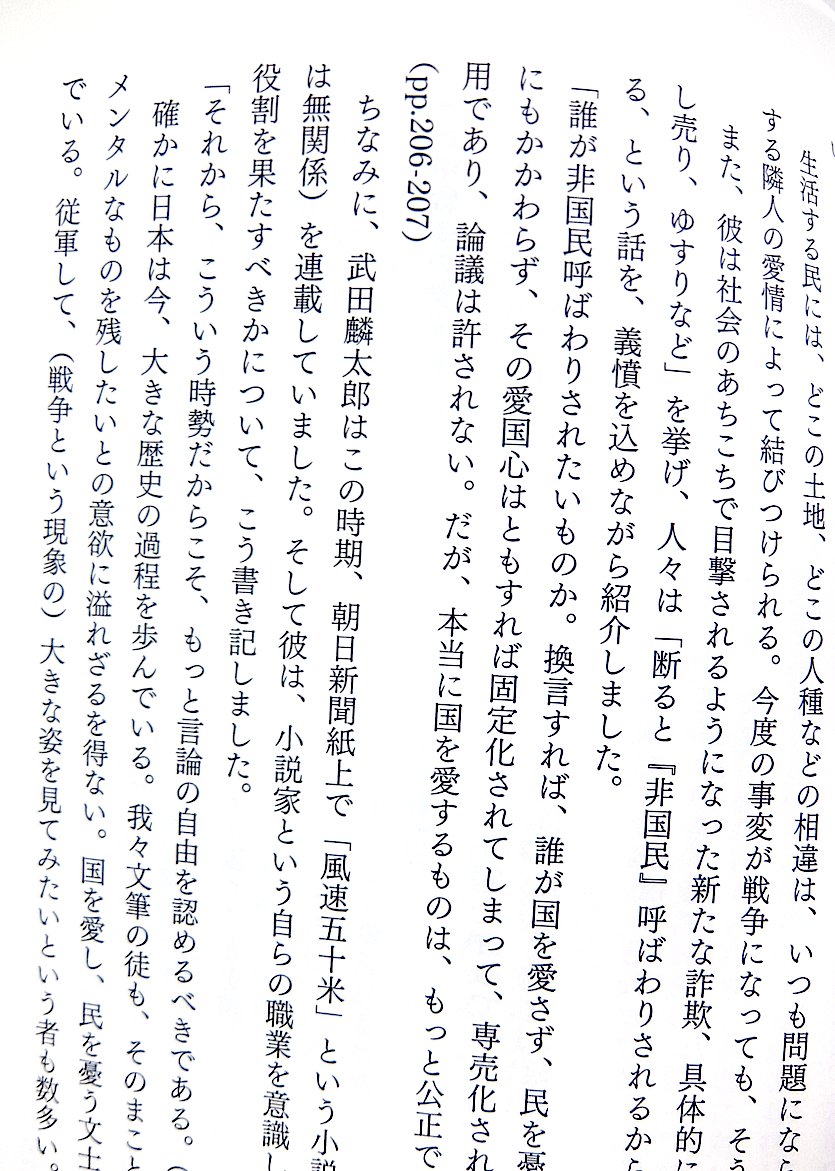 生活する民には、どこの土地、どこの人種などの相違は、いつも問題になら
する隣人の愛情によって結びつけられる。今度の事変が戦争になっても、そう
また、彼は社会のあちこちで目撃されるようになった新たな詐欺、具体的に
し売り、ゆすりなど」を挙げ、人々は「断ると『非国民』呼ばわりされるから
る、という話を、義憤を込めながら紹介しました。
「誰が非国民呼ばわりされたいものか。換言すれば、誰が国を愛さず、民を憂
にもかかわらず、その愛国心はともすれば固定化されてしまって、専売化され
用であり、論議は許されない。だが、本当に国を愛するものは、もっと公正で
(pp.206-207)
ちなみに、武田麟太郎はこの時期、朝日新聞紙上で「風速五十米」という小説
は無関係）を連載していました。そして彼は、小説家という自らの職業を意識し
役割を果たすべきかについて、こう書き記しました。
「それから、こういう時勢だからこそ、もっと言論の自由を認めるべきである。（
確かに日本は今、大きな歴史の過程を歩んでいる。我々文筆の徒も、そのまこと
メンタルなものを残したいとの意欲に溢れざるを得ない。国を愛し、民を憂う文士
でいる。従軍して、（戦争という現象の）大きな姿を見てみたいという者も数多い。